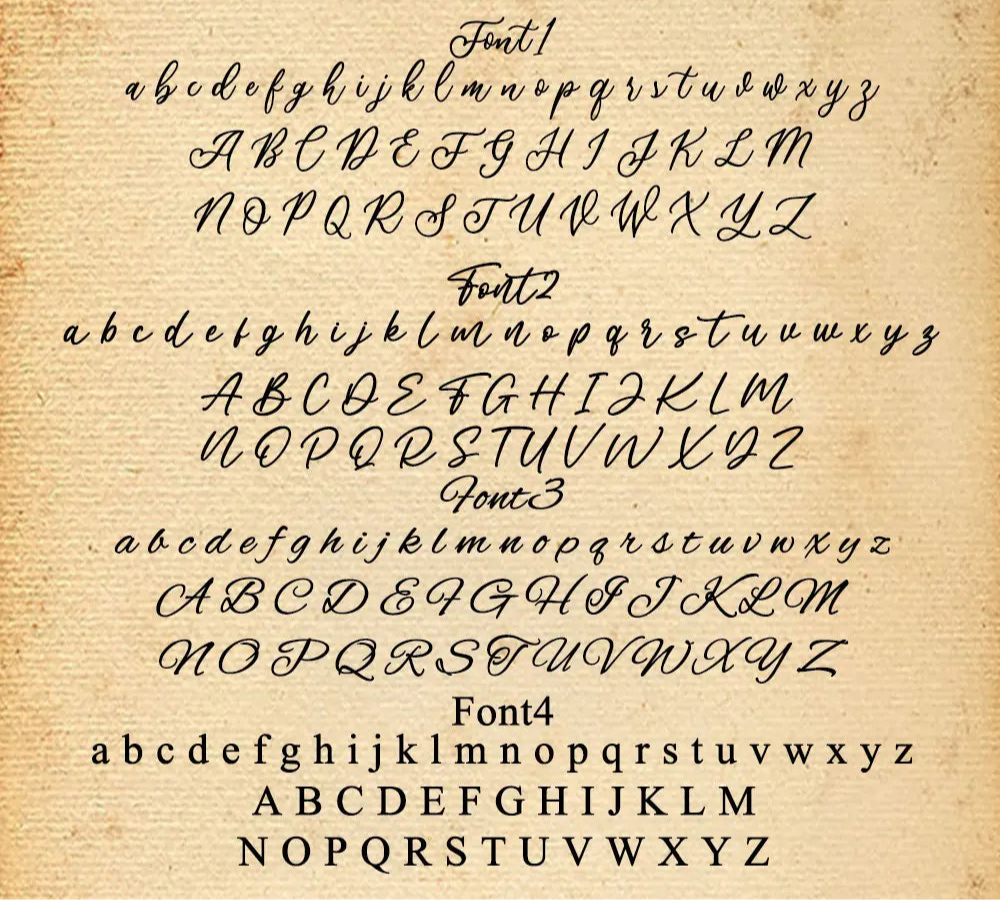 Font1
a b c d e f g h i j k l m n o p q r s t u v w x y z
A B C D E F G H I J K L M
N O P Q R S T U V W X Y Z
Font2
a b c d e f g h i j k l m n o p q r s t u v w x y z
A B C D E F G H I J K L M
N O P Q R S T U V W X Y Z
Font3
a b c d e f g h i j k l m n o p q r s t u v w x y z
A B C D E F G H I J K L M
N O P Q R S T U V W X Y Z
Font4
a b c d e f g h i j k l m n o p q r s t u v w x y z
A B C D E F G H I J K L M
N O P Q R S T U V W X Y Z